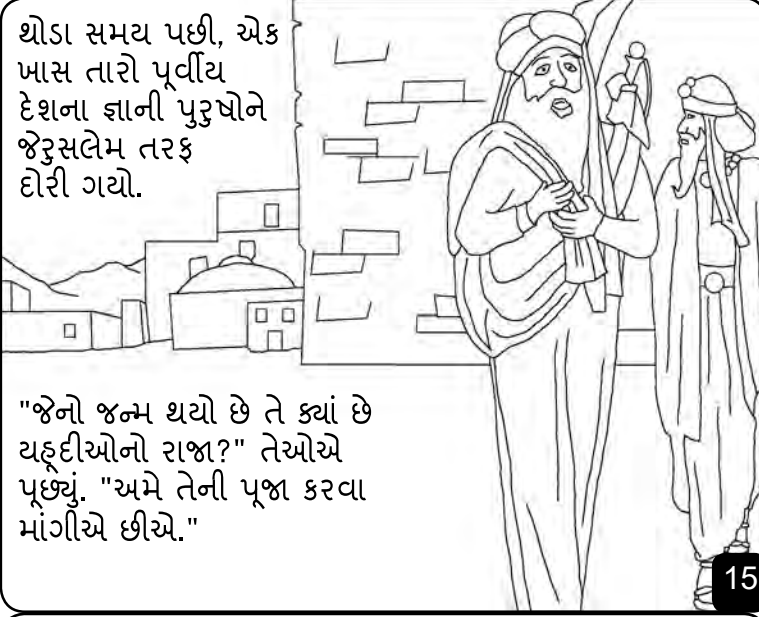 થોડા સમય પછી, એક
ખાસ તારો પૂર્વીય
દેશના જ્ઞાની પુરુષોને
જેરુસલેમ તરફ
દોરી ગયો.
"જેનો જન્મ થયો છે તે ક્યાં છે
યહૂદીઓનો રાજા?" તેઓએ
પૂછ્યું. "અમે તેની પૂજા કરવા
માંગીએ છીએ."
15